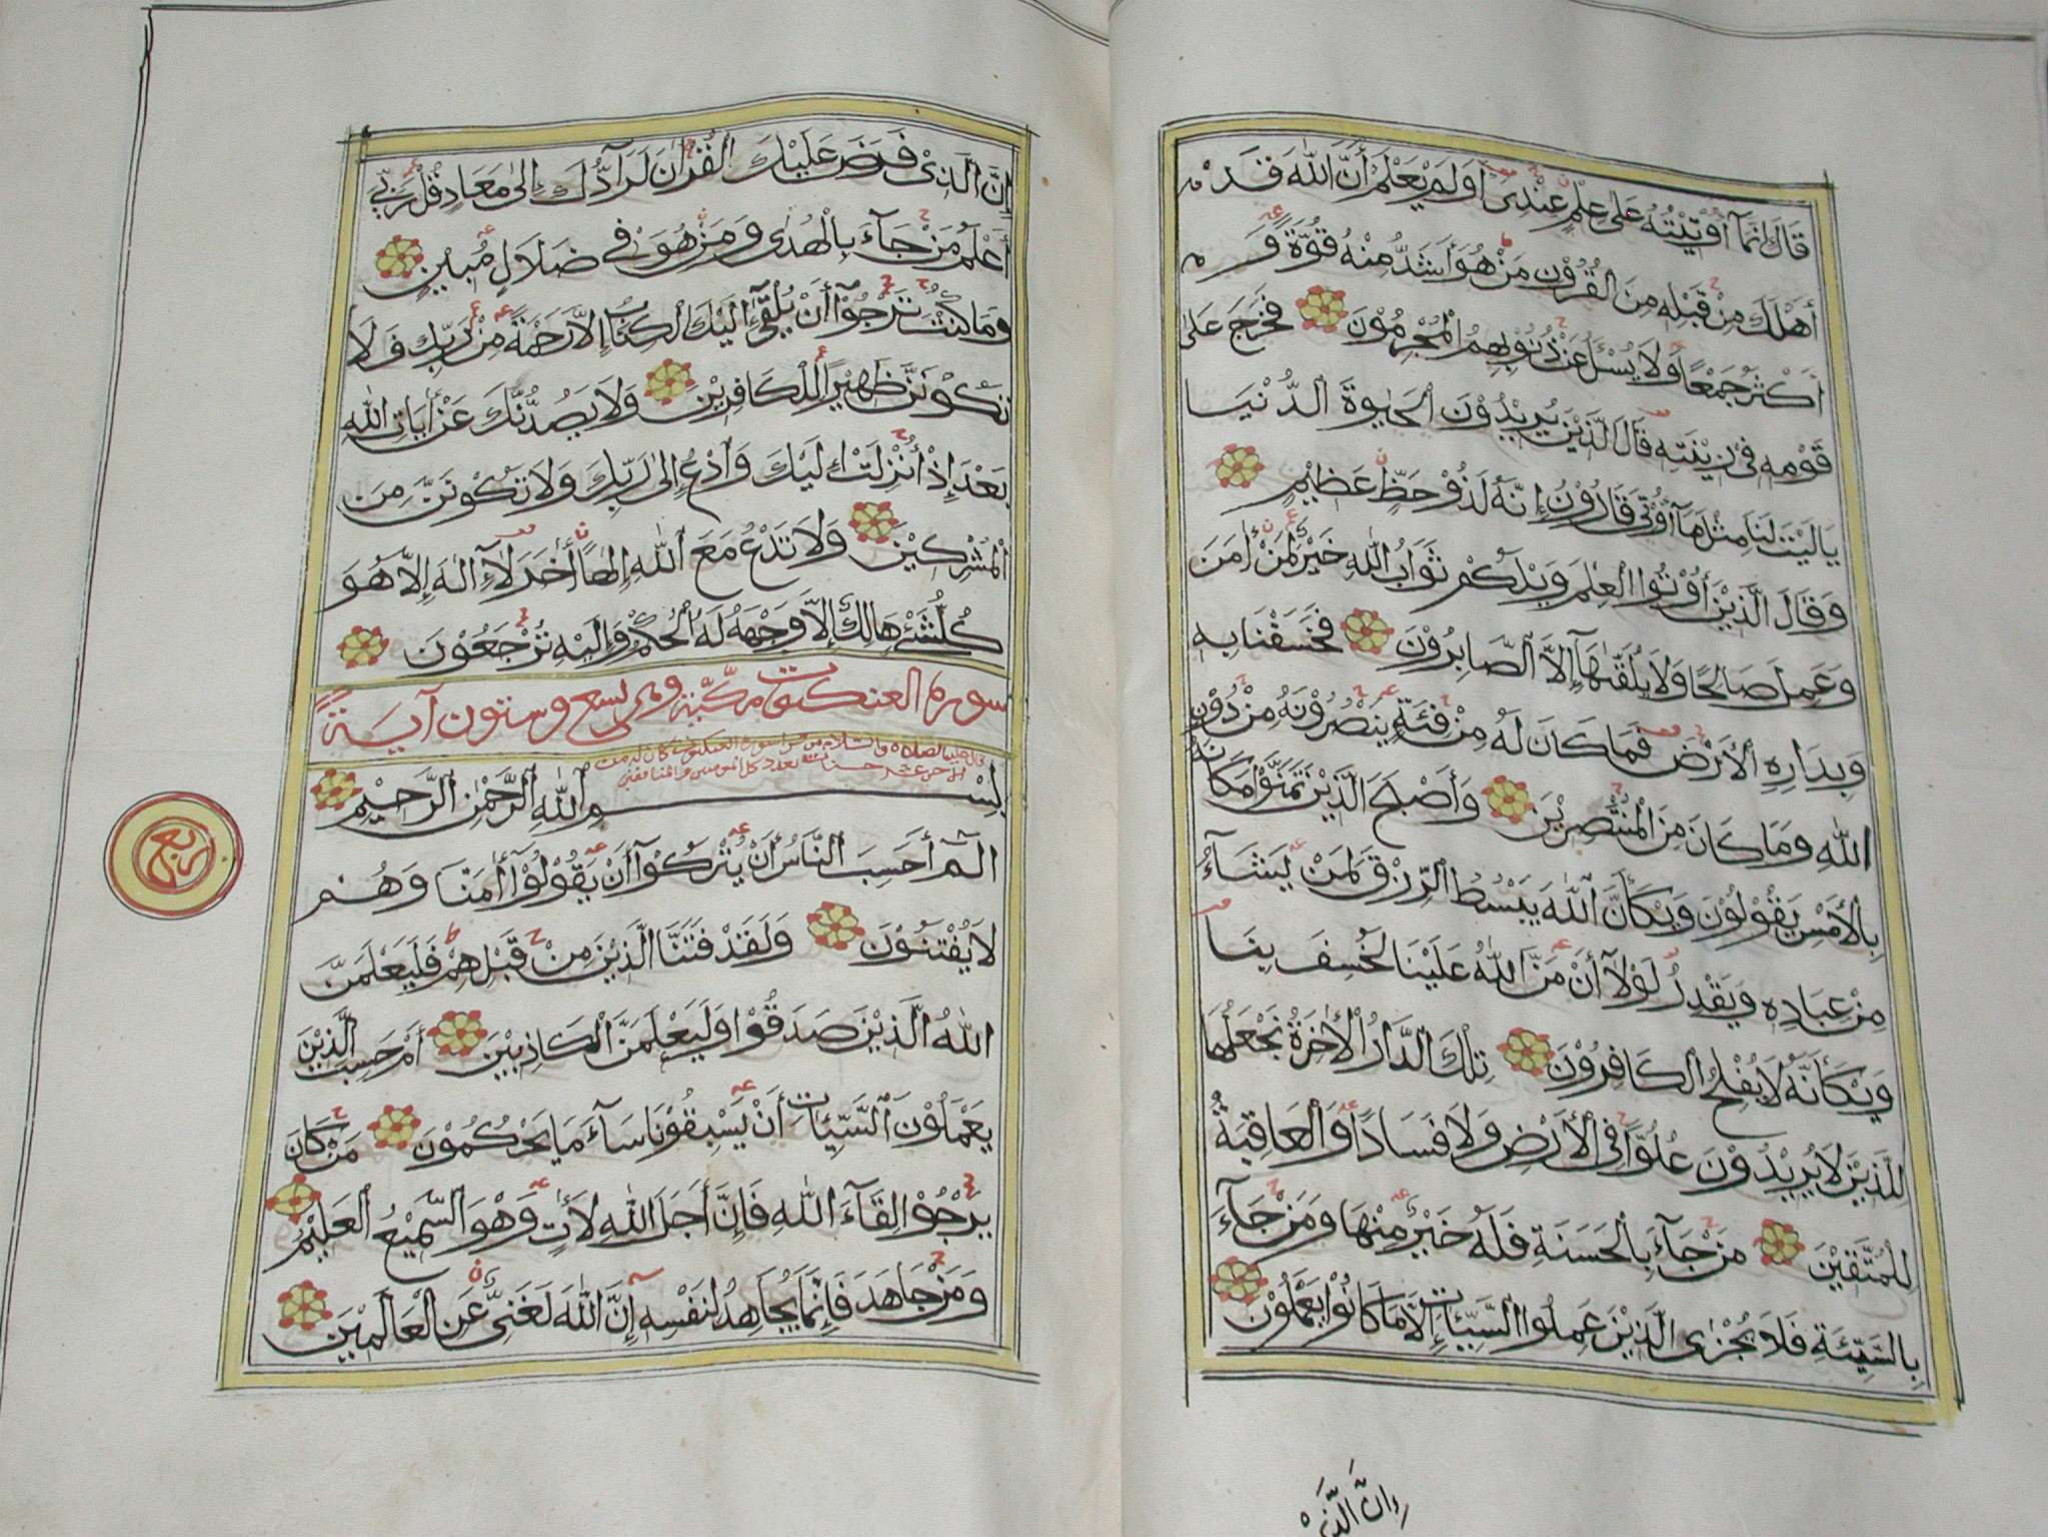 قَالَ إِنَّمَآ أُوْتِيْتُهُ عَلٰى عِلْمٍ عِنْدِىْ أَوَلَمْ يَعْلَمْ أَنَّ اللّٰهَ قَدْ
أَهْلَكَ مِنْ قَبْلِهِ مِنَ الْقُرُوْنِ مَنْ هُوَ أَشَدُّ مِنْهُ قُوَّةً وَ
أَكْثَرُ جَمْعًا وَلَا يُسْـَٔلُ عَنْ ذُنُوْبِهِمُ الْمُجْرِمُوْنَ فَخَرَجَ عَلٰى
قَوْمِهِ فِى زِيْنَتِهِ قَالَ الَّذِيْنَ يُرِيْدُوْنَ الْحَيٰوةَ الدُّنْيَا
يَالَيْتَ لَنَا مِثْلَ مَآ أُوْتِىَ قَارُوْنُ إِنَّهُ لَذُوْ حَظٍّ عَظِيْمٍ
وَقَالَ الَّذِيْنَ أُوْتُوا الْعِلْمَ وَيْلَكُمْ ثَوَابُ اللّٰهِ خَيْرٌ لِمَنْ اٰمَنَ
وَعَمِلَ صَالِحًا وَلَا يُلَقّٰىهَآ إِلَّا الصَّابِرُوْنَ فَخَسَفْنَا بِهِ
وَبِدَارِهِ الْأَرْضَ فَمَا كَانَ لَهُ مِنْ فِئَةٍ يَنْصُرُوْنَهُ مِنْ دُوْنِ
اللّٰهِ وَمَا كَانَ مِنَ الْمُنْتَصِرِيْنَ وَأَصْبَحَ الَّذِيْنَ تَمَنَّوْا مَكَانَهُ
بِالْأَمْسِ يَقُوْلُوْنَ وَيْكَأَنَّ اللّٰهَ يَبْسُطُ الرِّزْقَ لِمَنْ يَشَآءُ
مِنْ عِبَادِهِ وَيَقْدِرُ لَوْلَآ أَنْ مَنَّ اللّٰهُ عَلَيْنَا لَخُسِفَ بِنَا
وَيْكَأَنَّهُ لَا يُفْلِحُ الْكَافِرُوْنَ تِلْكَ الدَّارُ الْاٰخِرَةُ نَجْعَلُهَا
لِلَّذِيْنَ لَا يُرِيْدُوْنَ عُلُوًّا فِى الْأَرْضِ وَلَا فَسَادًا وَالْعَاقِبَةُ
لِلْمُتَّقِيْنَ مَنْ جَآءَ بِالْحَسَنَةِ فَلَهُ خَيْرٌ مِنْهَا وَمَنْ جَآءَ
بِالسَّيِّئَةِ فَلَا يُجْزَى الَّذِيْنَ عَمِلُوا السَّيِّئَاتِ إِلَّا مَا كَانُوْا يَعْمَلُوْنَ
إِنَّ الَّذِىْ
إِنَّ الَّذِىْ فَرَضَ عَلَيْكَ الْقُرْاٰنَ لَرَآدُّكَ إِلٰى مَعَادٍ قُلْ رَبِّىْ
أَعْلَمُ مَنْ جَآءَ بِالْهُدٰى وَمَنْ هُوَ فِى ضَلَالٍ مُبِيْنٍ
وَمَا كُنْتَ تَرْجُوْآ أَنْ يُلْقٰىٓ إِلَيْكَ الْكِتَابُ إِلَّا رَحْمَةً مِنْ رَبِّكَ فَلَا
تَكُوْنَنَّ ظَهِيْرًا لِلْكَافِرِيْنَ وَلَا يَصُدُّنَّكَ عَنْ اٰيَاتِ اللّٰهِ
بَعْدَ إِذْ أُنْزِلَتْ إِلَيْكَ وَادْعُ إِلٰى رَبِّكَ وَلَا تَكُوْنَنَّ مِنَ
الْمُشْرِكِيْنَ وَلَا تَدْعُ مَعَ اللّٰهِ إِلٰهًا اٰخَرَ لَآ إِلٰهَ إِلَّا هُوَ
كُلُّ شَىْءٍ هَالِكٌ إِلَّا وَجْهَهُ لَهُ الْحُكْمُ وَإِلَيْهِ تُرْجَعُوْنَ
سورة العنكبوت مكّيّة وهى تسع وستون آية
قال عليه الصلاة والسلام من قرأ سورة العنكبوت كان له من
الاجر عشر حسنات بعدد كل المؤمنين والمنافقين
بِسْمِ اللّٰهِ الرَّحْمٰنِ الرَّحِيْمِ
الٓمٓ أَحَسِبَ النَّاسُ أَنْ يُتْرَكُوْآ أَنْ يَقُوْلُوْآ اٰمَنَّا وَهُمْ
لَا يُفْتَنُوْنَ وَلَقَدْ فَتَنَّا الَّذِيْنَ مِنْ قَبْلِهِمْ فَلَيَعْلَمَنَّ
اللّٰهُ الَّذِيْنَ صَدَقُوْا وَلَيَعْلَمَنَّ الْكَاذِبِيْنَ أَمْ حَسِبَ الَّذِيْنَ
يَعْمَلُوْنَ السَّيِّئَاتِ أَنْ يَسْبِقُوْنَا سَآءَ مَا يَحْكُمُوْنَ مَنْ كَانَ
يَرْجُوْا لِقَآءَ اللّٰهِ فَإِنَّ أَجَلَ اللّٰهِ لَاٰتٍ وَهُوَ السَّمِيْعُ الْعَلِيْمُ
وَمَنْ جَاهَدَ فَإِنَّمَا يُجَاهِدُ لِنَفْسِهِ إِنَّ اللّٰهَ لَغَنِىٌّ عَنِ الْعَالَمِيْنَ
ربع